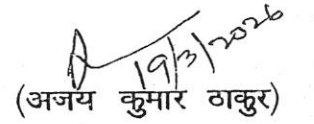 19/3/2026
(अजय कुमार ठाकुर)